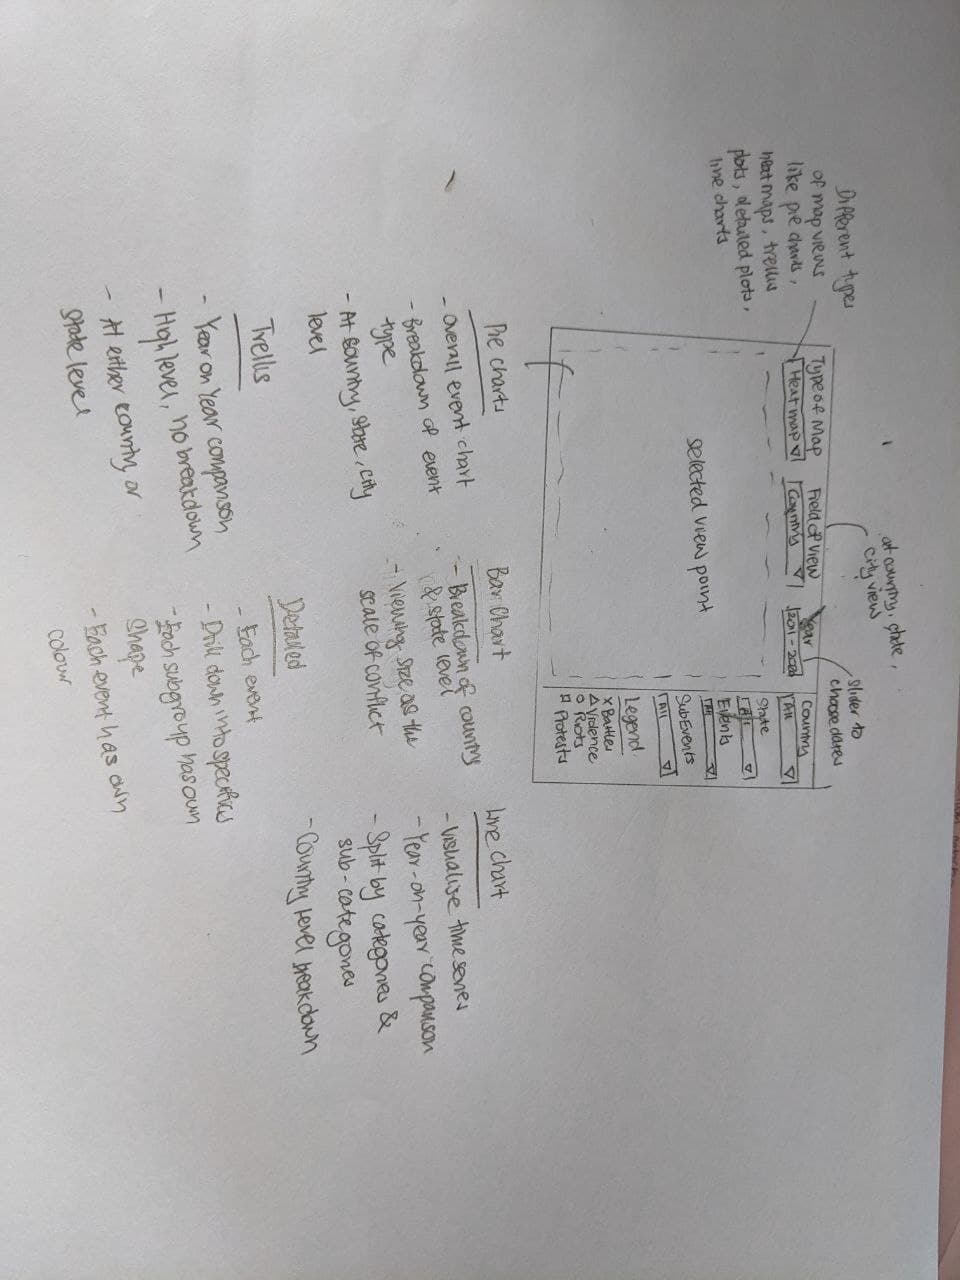 at country, state,
city view
Slider to
choose dates
Different types
of map views
like pie charts,
heat maps, trellis
plots, detailed plots,
line charts
Type of Map
Heat map
Field of View
Country
Year
2011 - 2020
Country
All
State
All
Events
All
SubEvents
All
Legend
x Battles
△ Violence
○ Riots
□ Protests
selected view point
Pie charts
- Overall event chart
- Breakdown of event
type
- At Country, State, City
level
Bar Chart
- Breakdown of country
& state level
- Viewing size as the
scale of conflict
Line Chart
- Visualise time series
- Year-on-year comparison
- Split by categories &
sub-categories
- Country level breakdown
Trellis
- Year on Year comparison
- High level, no breakdown
- At either country or
state level
Detailed
- Each event
- Drill down into specifics
- Each subgroup has own
shape
- Each event has own
colour